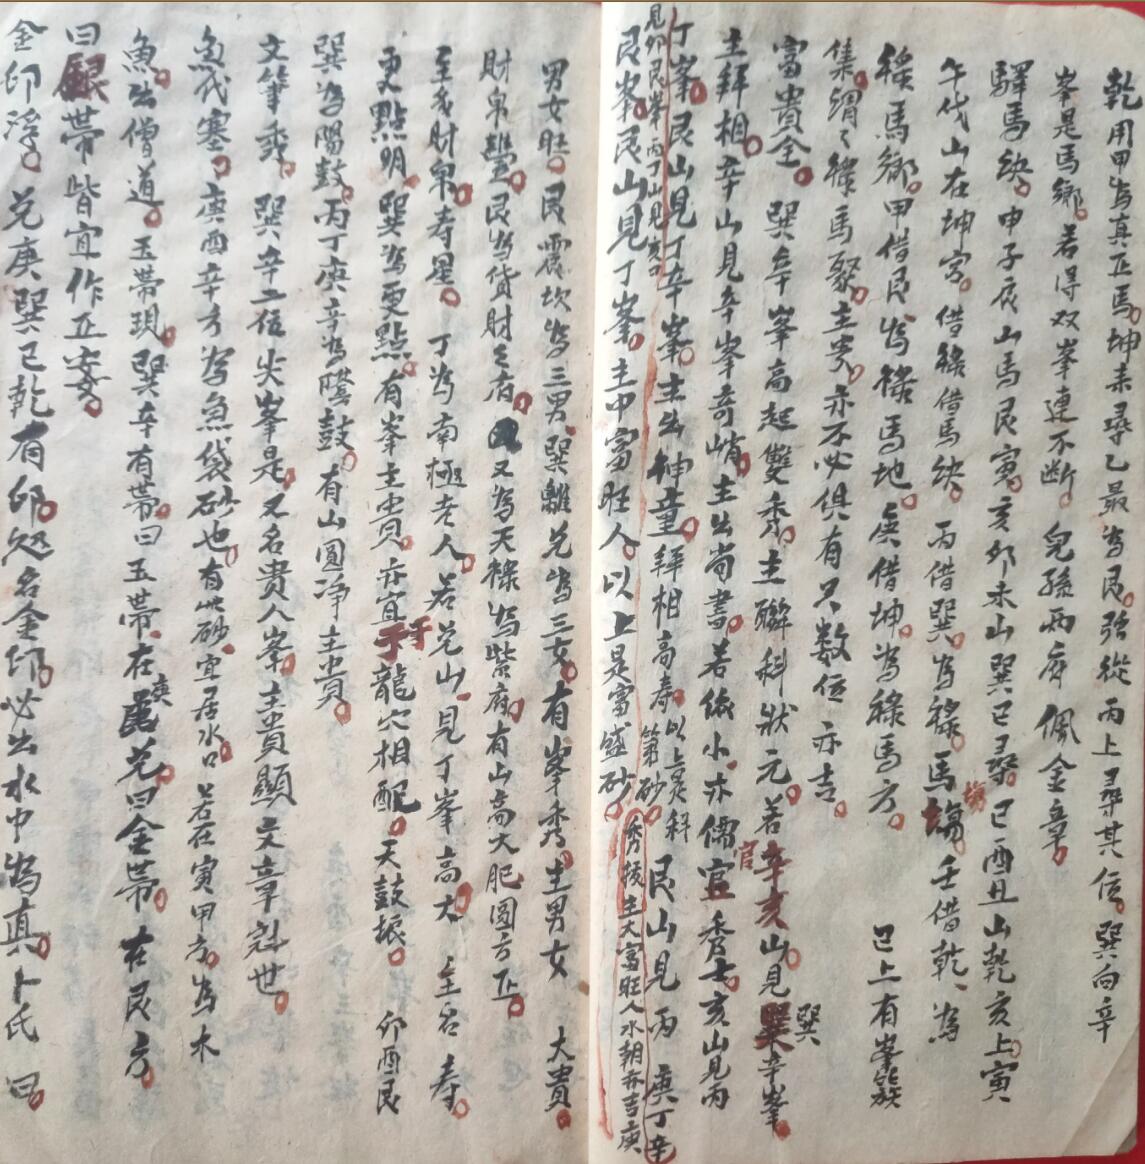 乾用甲為真正馬坤未尋乙最為良強從丙上尋其位巽向辛
峯是馬鄉若得双峯連不断兒孫两府佩金章
驛馬缺申子辰山馬艮寅亥卯未山巽巳尋巳酉丑山乾亥上寅
午戌山在坤宮借祿借馬缺丙借巽為祿馬塲壬借乾為
祿馬鄉甲借艮為祿馬地庚借坤為祿馬方 已上有峯能簇
集謂之祿馬聚主贵亦不必俱有只数位亦吉
富貴全巽辛峯高起雙秀主聯科狀元若辛亥山見巽辛峯
主拜相辛山見辛峯奇峭主出尚書若低小亦儒官秀士亥山見丙
丁峯艮山見丁辛峯主出神童拜相高寿以上是科第砂艮山見丙庚丁辛
見卯艮峯丙丁山見亥
艮峯艮山見丁峯主中富旺人以上是富盛砂
秀拔主大富旺人水朝亦吉庚
男女旺艮震坎為三男巽離兑為三女有峯秀主男女大貴
財帛豐艮為貨財之府又為天祿為紫府有山高大肥圓方正
主我財帛寿星丁為南極老人若兑山見丁峯高大主名寿
更點明巽為更點有峯主貴亦宜于龍穴相配天鼓振卯酉艮
巽為陽鼓丙丁庚辛為陰鼓有山圓净主貴
文筆秀巽辛二位尖峯是又名貴人峯主貴顯文章冠世
魚代塞庚酉辛方為魚袋砂也有此砂宜居水口若在寅甲方為木
魚出僧道玉帯現巽辛有帯曰玉帯在庚兑曰金帯在艮方
曰銀帯皆宜作正案
金印浮兑庚巽巳乾有印处名金印必出水中為真卜氏曰